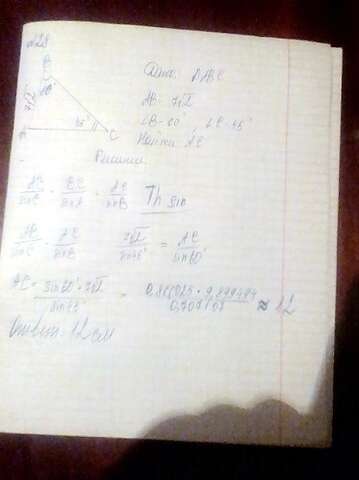 Дано: △ABC
B
AB = 7√2
7√2
60°
∠B = 60°, ∠C = 45°
45°
C
Найти AC
Решение
AB/sinC = BC/sinA = AC/sinB Th sin
AB/sinC = AC/sinB 7√2/sin45° = AC/sin60°
AC = sin60° · 7√2 / sin45° = 0,866025 · 9,899494 / 0,707107 ≈ 12
Ответ: 12 см